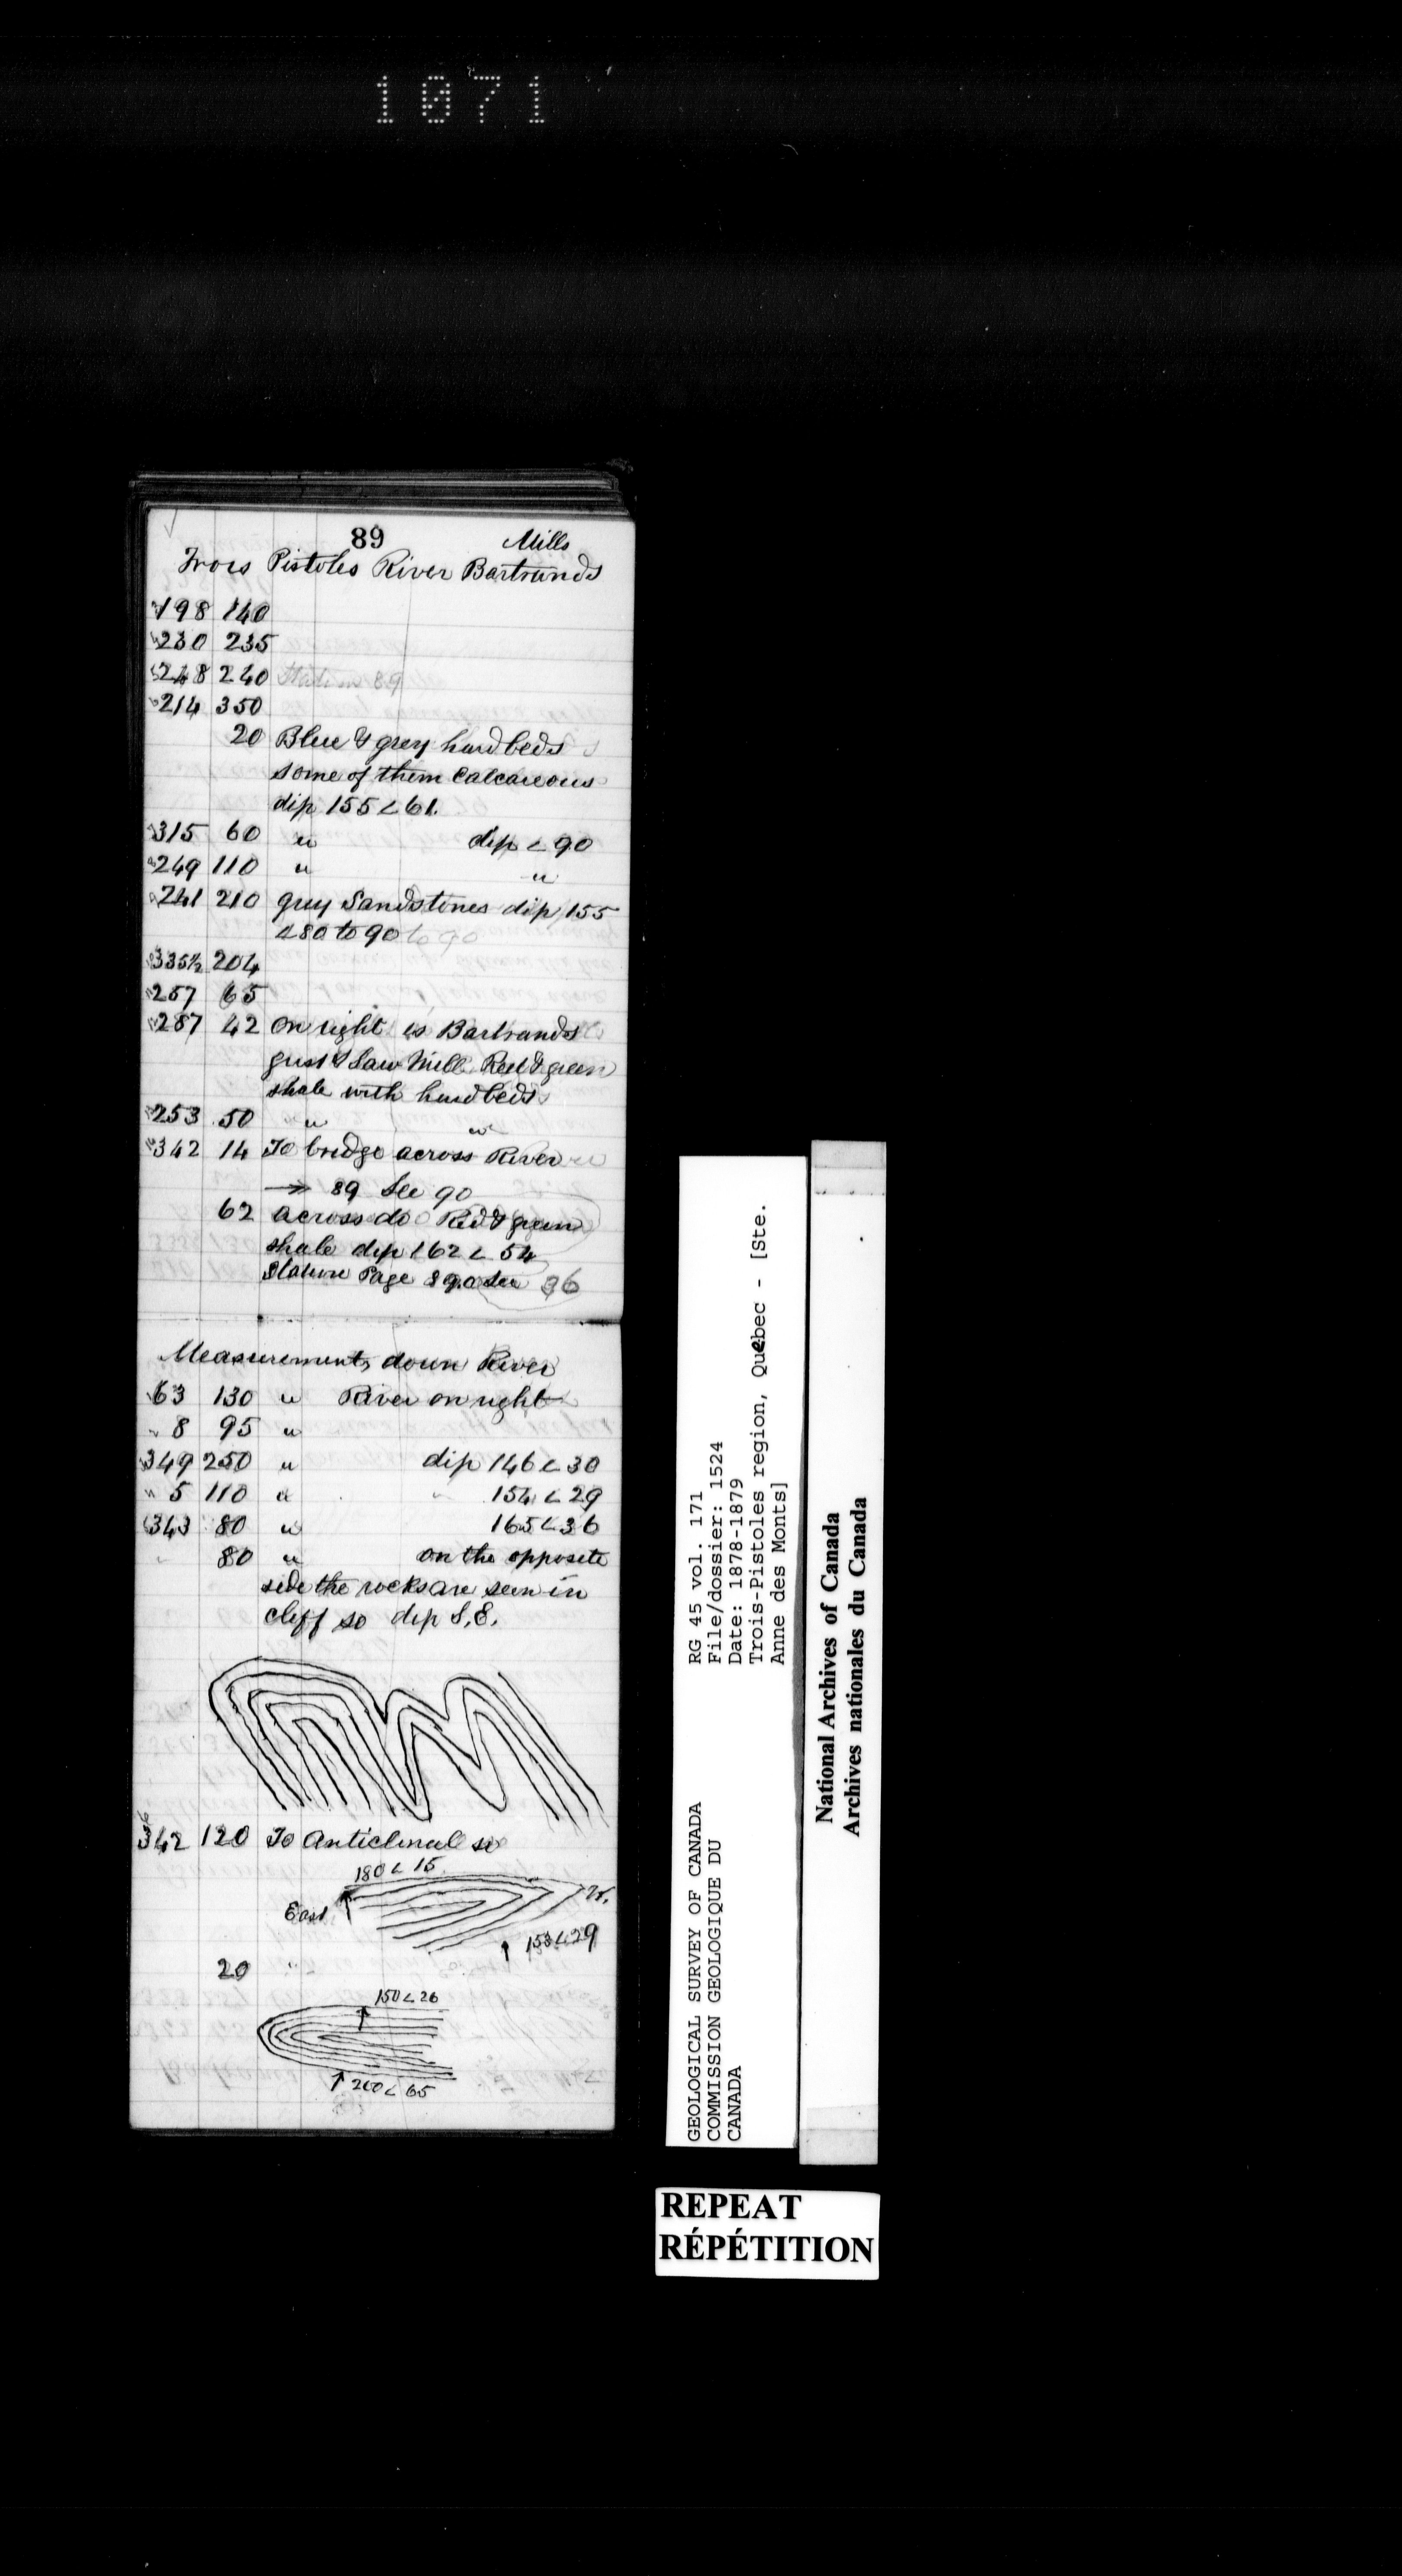 1071
89 Mills
Trois Pistoles River Bartrands
198 140
230 235
248 240 Station 89
214 350
20 Blue & grey hard beds
some of them Calcareous
dip 155 < 61.
315 60 " dip < 90
249 110 " "
241 210 grey Sandstones dip 155
< 80 to 90 to 90
335½ 204
257 65
287 42 On right is Bartrands
grist & Saw Mill. Red & green
shale with hard beds
253 50 " "
342 14 To bridge across River
→ 89 See 90
62 across do Red & green
shale dip 162 < 54
Station Page 89 See 36
Measurements down River
63 130 " River on right
8 95 "
349 250 " dip 146 < 30
5 110 " " 154 < 29
343 80 " 165 < 36
80 " on the opposite
side the rocks are seen in
cliff so dip S.E.
342 120 To Anticlinal so
180 < 15
East W.
153 < 29
20 "
150 < 26
200 < 65
RG 45 vol. 171
File/dossier: 1524
Date: 1878-1879
Trois-Pistoles region, Québec - [Ste.
Anne des Monts]
GEOLOGICAL SURVEY OF CANADA
COMMISSION GEOLOGIQUE DU
CANADA
National Archives of Canada
Archives nationales du Canada
REPEAT
RÉPÉTITION